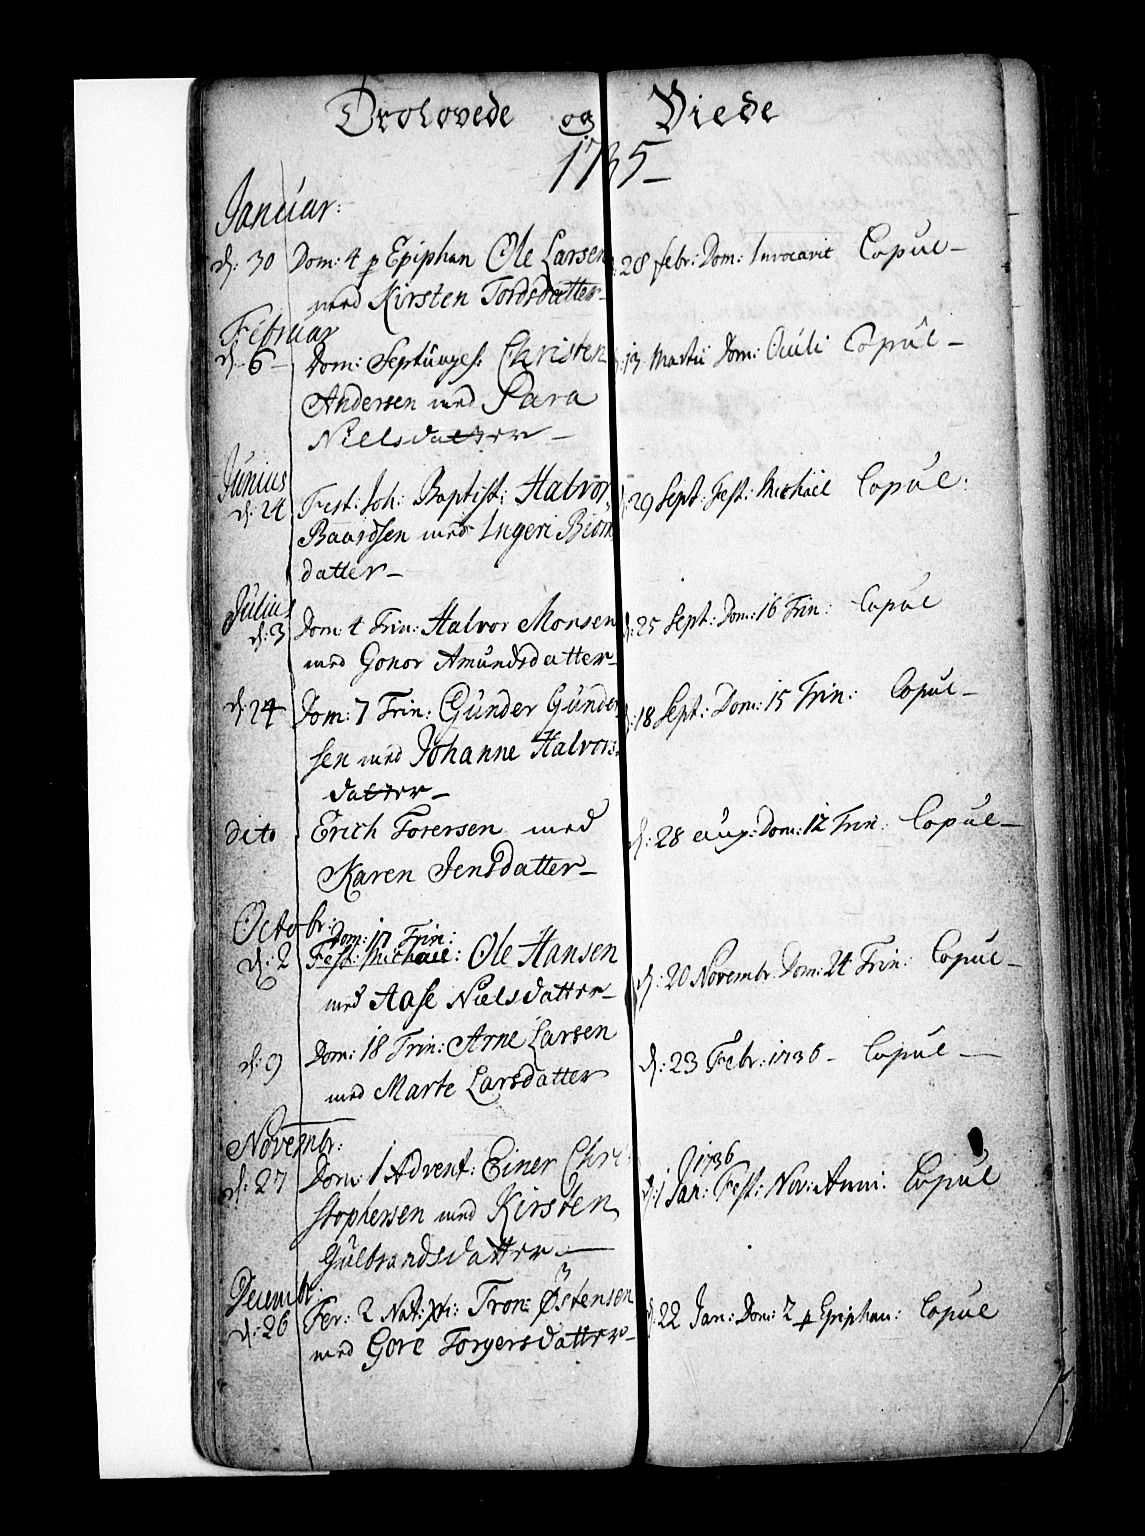 Trolovede og Viede
1735
Januar:
d: 30 Dom: 4 p Epiphan Ole Larsen d: 28 febr: Dom: Invocavit Copul
med Kirsten Tordsdatter
Februar
d. 6 Dom: Septuages: Christen d: 13 Martii Dom: Oculi Copul
Andersen med Sara
Nielsdatter
Junius
d: 24 Fest: Joh: Baptist: Halvor d: 29 Sept: Fest: Michael Copul.
Baardsen med Ingeri Biørn
datter
Julius
d: 3 Dom: 4 Trin: Halvor Monsen d: 25 Sept: Dom: 16 Trin: Copul
med Gonor Amundsdatter
d: 24 Dom: 7 Trin: Gunder Gunder d: 18 Sept: Dom: 15 Trin: Copul
sen med Johanne Halvors
datter
dito Erich Torersen med d: 28 aug: Dom: 12 Trin: Copul
Karen Jensdatter
Octobr:
Dom: 17 Trin:
d: 2 Fest: Michael: Ole Hansen d: 20 Novembr Dom: 24 Trin: Copul
med Aase Nielsdatter
d: 9 Dom: 18 Trin: Arne Larsen d: 23 Febr: 1736 Copul
med Marte Larsdatter
Novembr:
1736
d: 27 Dom: 1 Advent: Einer Chri d: 1 Jan: Fest: Nov: Anni: Copul
stophersen med Kirsten
Gulbrandsdatter
Decembr:
d: 26 Fer: 2 Nat: Xti: Tron Østensen d: 22 Jan: Dom: 2 p Epiphan: Copul
med Gore Torgersdatter